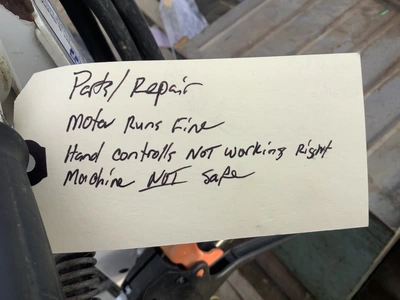 Parts/Repair
Motor Runs Fine
Hand controlls NOT working Right
Machine NOT Safe